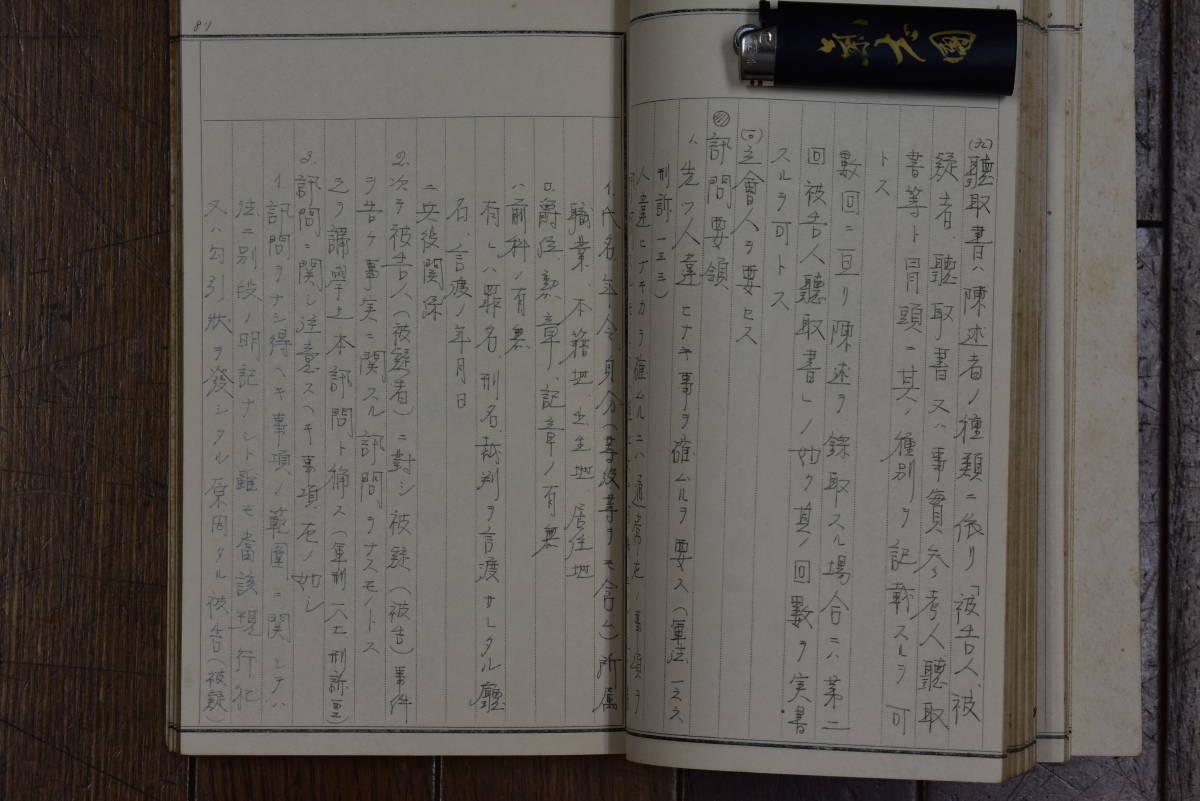 (九)聽取書ハ陳述者ノ種類ニ依リ「被告人、被
疑者、聽取書又ハ事實参考人聽取
書等ト冒頭ニ其ノ種別ヲ記載スルヲ可
トス
數回ニ亘リ陳述ヲ錄取スル場合ニハ第二
回被告人聽取書」ノ如ク其ノ回數ヲ実書
スルヲ可トス
(一〇)立會人ヲ要セス
訊問要領
1、先ツ人違ヒナキ事ヲ確ムルヲ要ス(軍法一
刑訴一三三)
人違ヒナキカヲ確ムルニハ通常左ノ事項ヲ
イ、氏名、年令、身分(等級等ヲモ含ム)所属
職業、本籍地、出生地、居住地
ロ、爵位、勲章、記章ノ有無
ハ、前科ノ有無
有レハ罪名、刑名、裁判ヲ言渡サレタル廳
名、言渡ノ年月日
ニ、兵役関係
2、次テ被告人(被疑者)ニ對シ被疑(被告)事件
ヲ告ケ事実ニ関スル訊問ヲナスモノトス
之ヲ講學上本訊問ト稱ス(軍刑 刑訴)
3、訊問ニ関シ注意スヘキ事項左ノ如シ
イ、訊問ヲナシ得ヘキ事項ノ範囲ニ関シテハ
法ニ別段ノ明記ナシト雖モ當該現行犯
又ハ勾引狀ヲ發シタル原因タル被告(被疑)